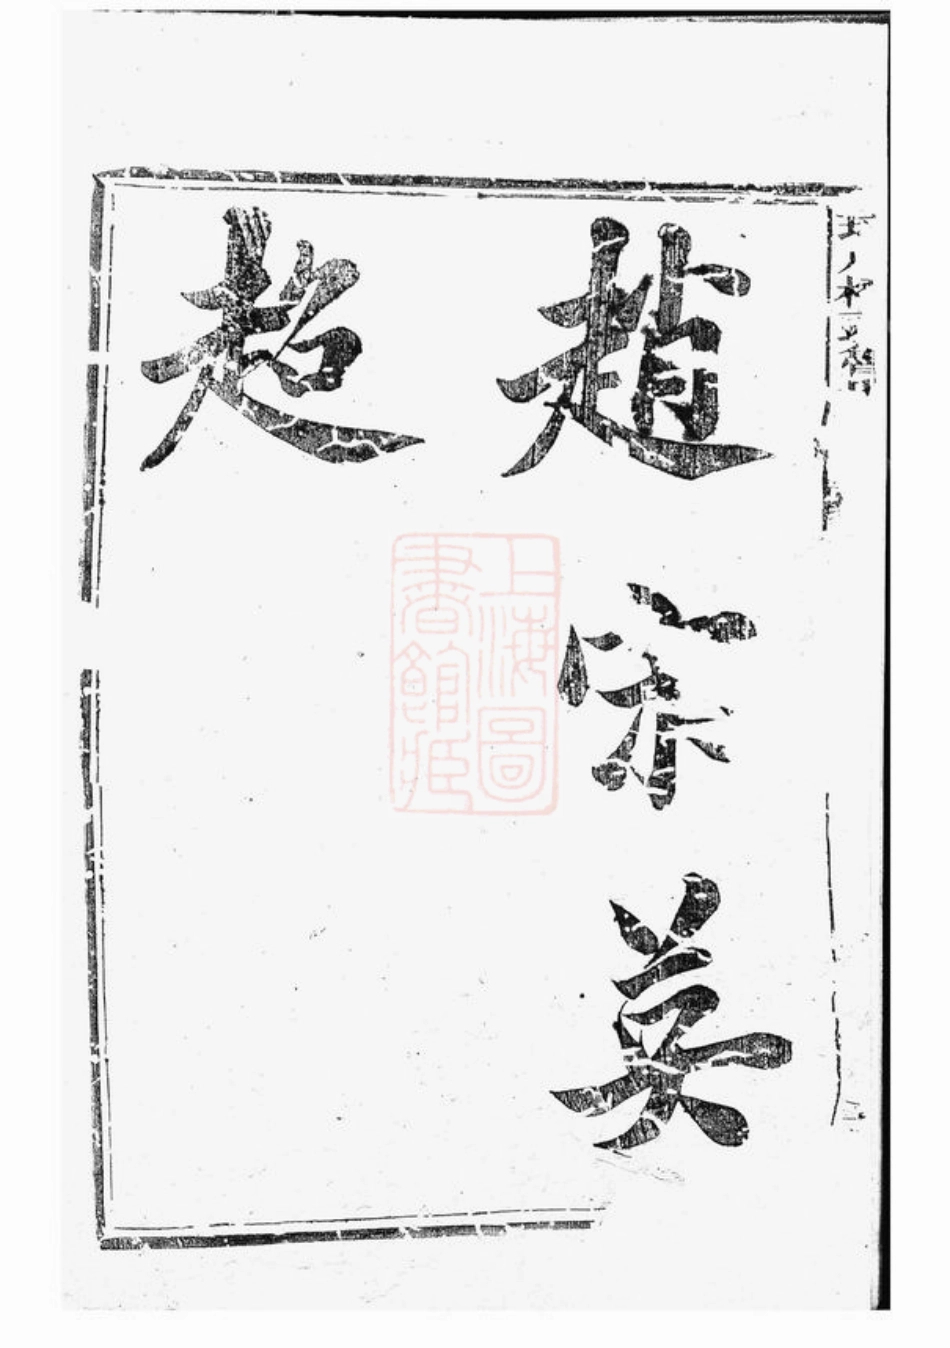 趙宗英
超
上海圖
書館藏